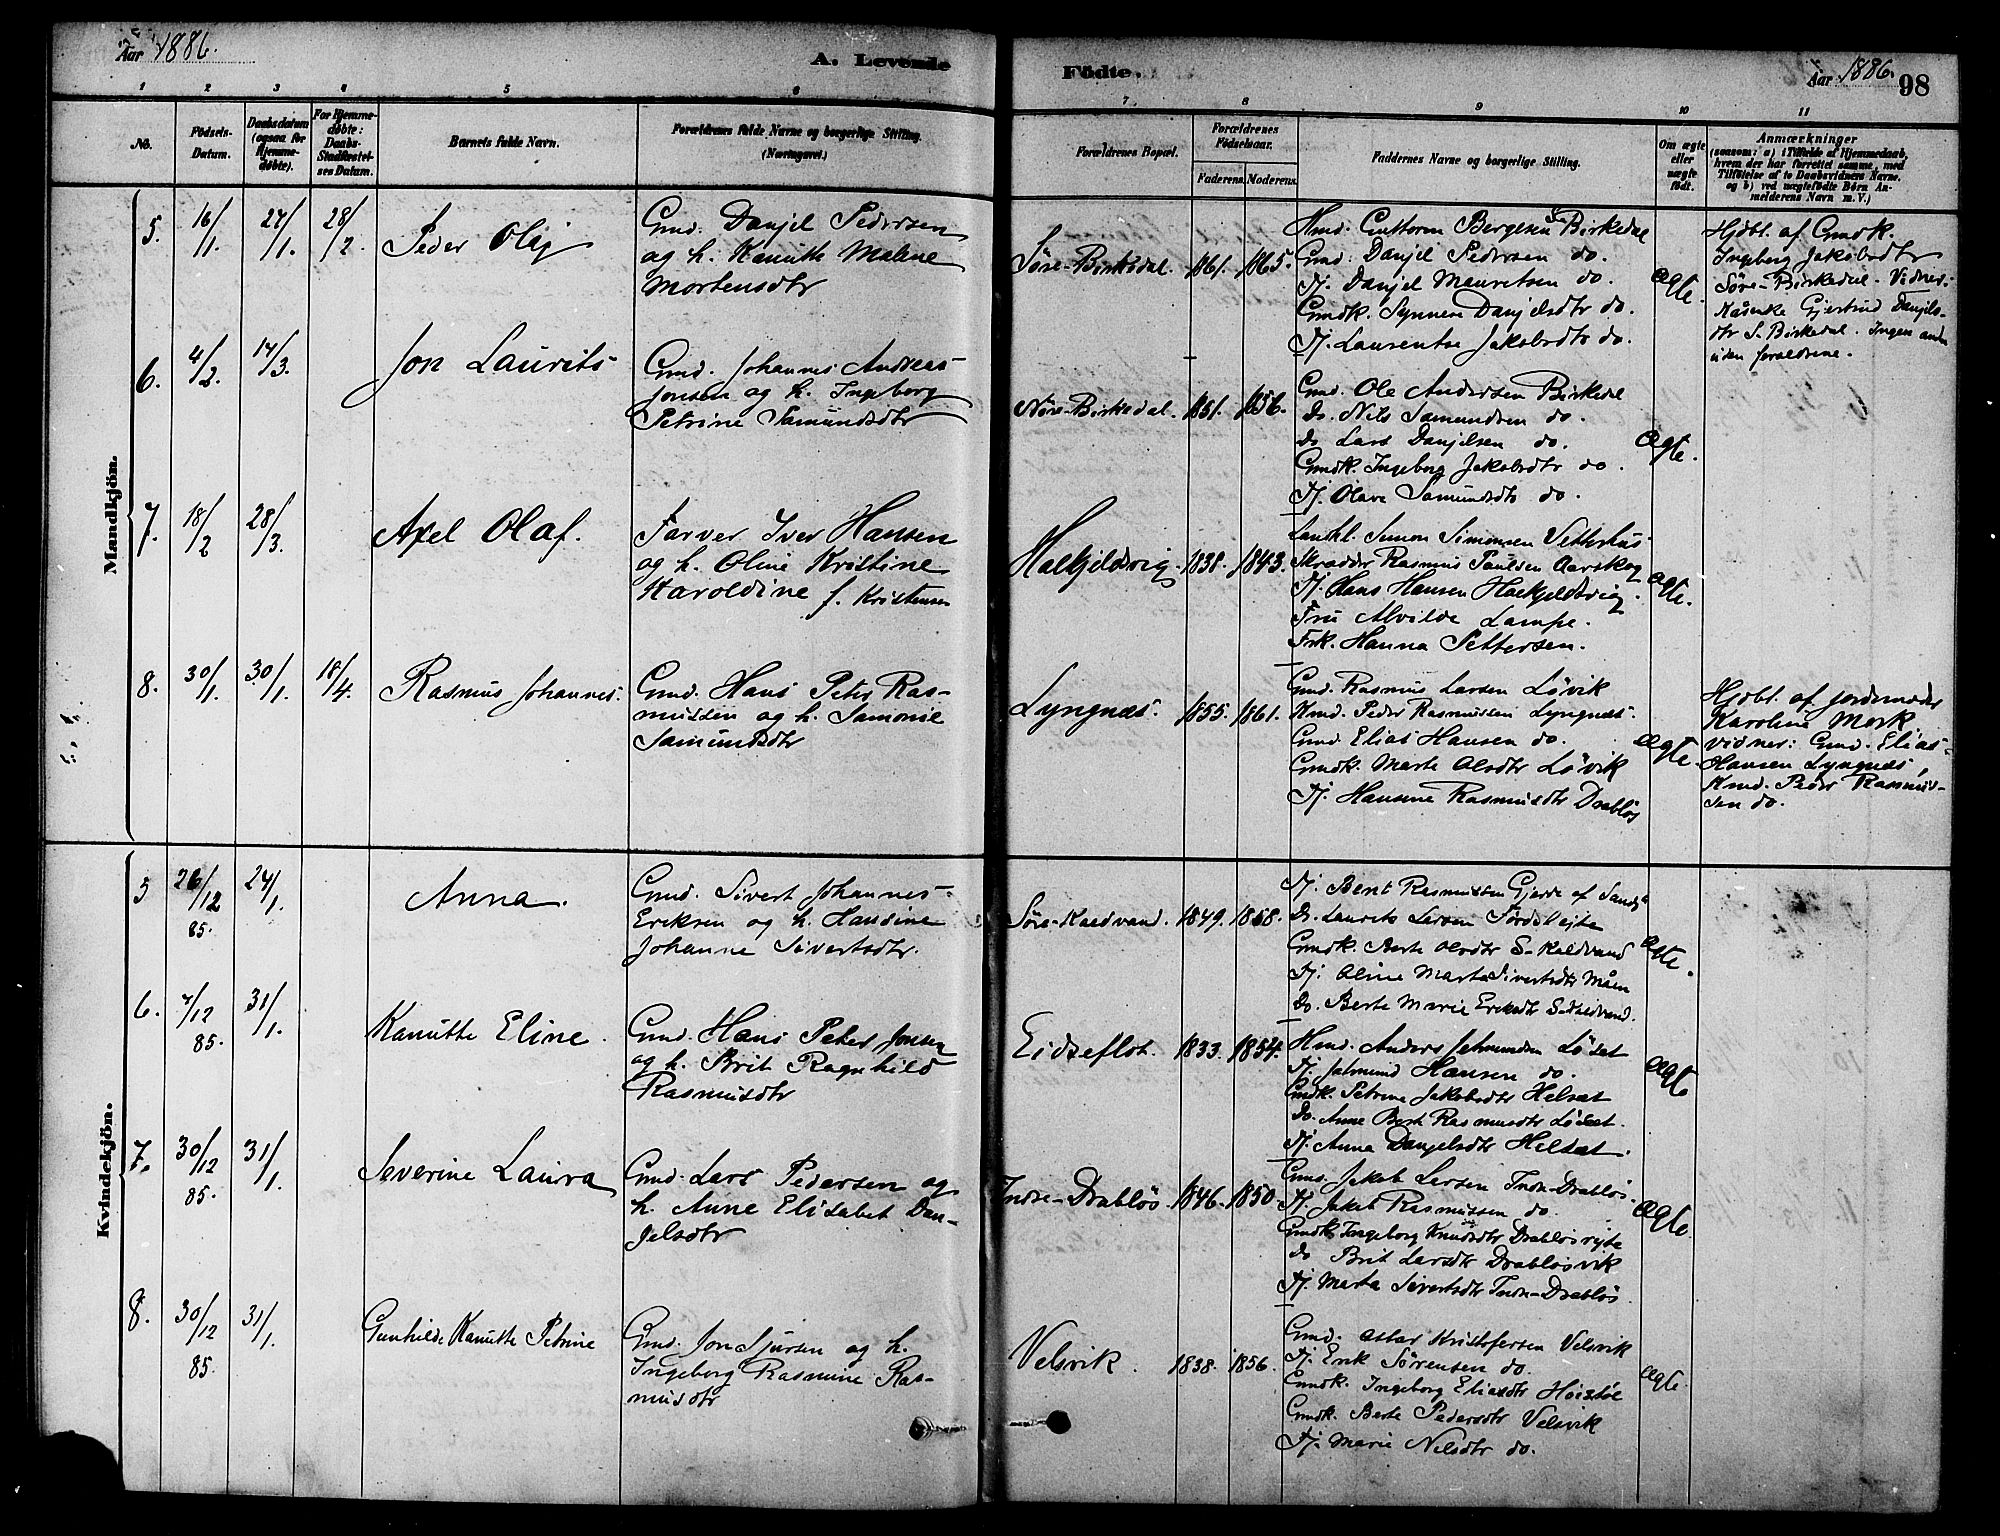 Aar 1886.
A. Levende
Födte.
Aar 1886.
98
1 2 3 4 5 6 7 8 9 10 11
No.
Födsels-
Datum.
Daabsdatum
(ogsaa for
Hjemme-
døbte).
For Hjemme-
døbte:
Daabs-
Stadfæstel-
ses Datum.
Barnets fulde Navn.
Forældrenes fulde Navne og borgerlige Stilling.
(Næringsvei.)
Forældrenes Bopæl.
Forældrenes
Fødselsaar.
Faderens. Moderens.
Faddernes Navne og borgerlige Stilling.
Om ægte
eller
uægte
født.
Anmærkninger
(saasom: a) i Tilfælde af Hjemmedaab,
hvem der har forrettet samme, med
Tilføielse af to Daabsvidners Navne,
og b) ved uægtefødte Børn An-
melderens Navn m. V.)
Mandkjön.
5. 16/1. 27/1. 28/2. Peder Olai
Gmd. Danjel Pedersen
og h. Kanutte Malene
Mortensdtr
Søre-Birkedal. 1861. 1865.
Hmd. Guttorm Bergesen S. Birkedal
Gmd. Danjel Pedersen do.
Tj. Danjel Mauritsen do.
Gmdk. Synneve Danjelsdtr do.
Tj. Laurentse Jakobsdtr do.
Ægte.
Hjdbt. af Gmdk.
Ingeborg Jakobsdtr
Søre-Birkedal. Vidner:
Gjertrud Danjels-
dtr S. Birkedal. Ingen anden
uden forældrene.
6. 4/2. 14/3. Jon Laurits
Gmd. Johannes Andreas
Jonsen og h. Ingeborg
Petrine Samundsdtr
Nøre-Birkedal. 1851. 1856.
Gmd. Ole Andersen Birkedal
Do. Nils Samundsen do.
Do Lars Danjelsen do.
Gmdk. Ingeborg Jakobsdtr do.
Tj. Olave Samundsdtr do.
Ægte.
7. 18/2 28/3. Axel Olaf.
Farver Iver Hansen
og h. Oline Kristine
Haroldine f. Kristensen
Hækjeldsvig. 1838. 1843.
Landhl. Simon Simonsen Vetterhus
Skrædder Rasmus Paulsen Aarskog
Tj. Hans Hansen Hækjeldsvig.
Fru Alvilde Lampe.
Frk. Hanna Pettersen.
Ægte.
8. 30/1. 30/1. 18/4. Rasmus Johannes.
Gmd. Hans Peter Ras-
mussen og h. Samonie
Samundsdtr
Lyngnæs. 1855. 1861.
Gmd. Rasmus Larsen Løvik
Kmd. Peder Rasmussen Lyngnæs.
Gmd. Elias Hansen do.
Gmdk. Marte Olsdtr Løvik
Tj. Hansine Rasmusdtr Drabløs
Ægte.
Hjdbt. af jordemoder
Karoline Mork
Vidner: Gmd. Elias
Hansen Lyngnæs,
Kmd. Peder Rasmus-
sen do.
Kvindekjön.
5 26/12 85. 24/1. Anna.
Gmd. Sivert Johannes
Eriksen og h. Hansine
Johanne Sivertsdtr.
Søre-Kaldvand. 1849. 1858.
Tj. Bent Rasmussen Gjerde af
Do. Laurits Larsen
Gmdk. Berte Olsdtr S-Kaldvand
Tj. Oline Marte Sivertsdtr
Do. Berte Marie Eriksdtr S-Kaldvand.
Ægte.
6. 7/12 85. 31/1. Kanutte Eline.
Gmd. Hans Peter Jonsen
og h. Brit Ragnhild
Rasmusdtr
Eidseflot. 1833. 1854.
Hmd. Anders Jetmundsen Løset
Tj. Jetmund Hansen do.
Gmdk. Petrine Jakobsdtr Helset
Do. Anne Berte Rasmusdtr Løset.
Tj. Anna Danjelsdtr Helset.
Ægte
7. 30/12 85. 31/1. Severine Laura
Gmd. Lars Pedersen og
h. Anne Elisabet Dan-
jelsdtr
Indre-Drabløs 1846. 1850.
Gmd. Jakob Larsen Indr-Drabløs.
Tj. Jakob Rasmussen do.
Gmdk. Ingeborg Knudsdtr
Do Brit Larsdtr Drabløsvik
Tj. Marta Sivertsdtr Indr-Drabløs.
Ægte
8. 30/12 85. 31/1. Gunhilde Kanutte Petrine
Gmd. Jon Sjursen og h.
Ingeborg Rasmine Ras-
musdtr
Velsvik. 1838. 1856.
Gmd. Kristofersen Velsvik
Tj. Erik Sørensen do.
Gmdk. Ingeborg Eliasdtr
Gmdk. Berte Pedersdtr Velsvik
Tj. Marie Nilsdtr do.
Ægte.